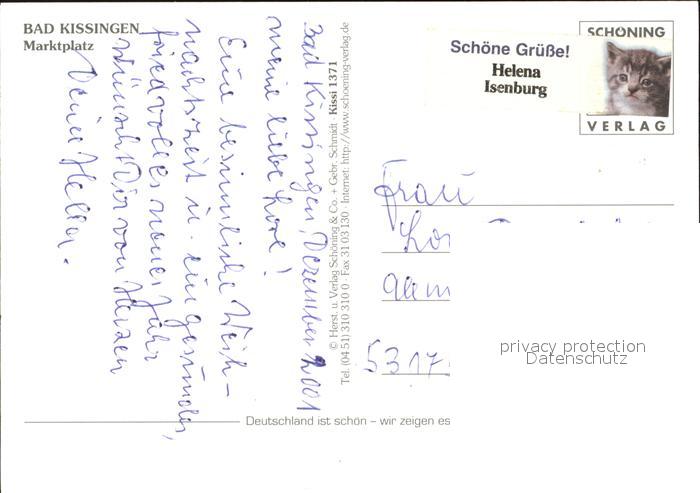 BAD KISSINGEN
Marktplatz
Bad Kissingen, Dezember 2001
meine liebe Lore!
Eine besinnliche Weih-
nachtszeit u. ein gesundes,
friedvolles neues Jahr
wünscht Dir von Herzen
Deine Hella.
© Herst. u. Verlag Schöning & Co. + Gebr. Schmidt · Kissi 1371
Tel. (04 51) 310 310 0 · Fax 31 03 130 · Internet: http://www.schoening-verlag.de
Schöne Grüße!
Helena
Isenburg
SCHÖNING
VERLAG
Frau
5317
privacy protection
Datenschutz
Deutschland ist schön – wir zeigen es